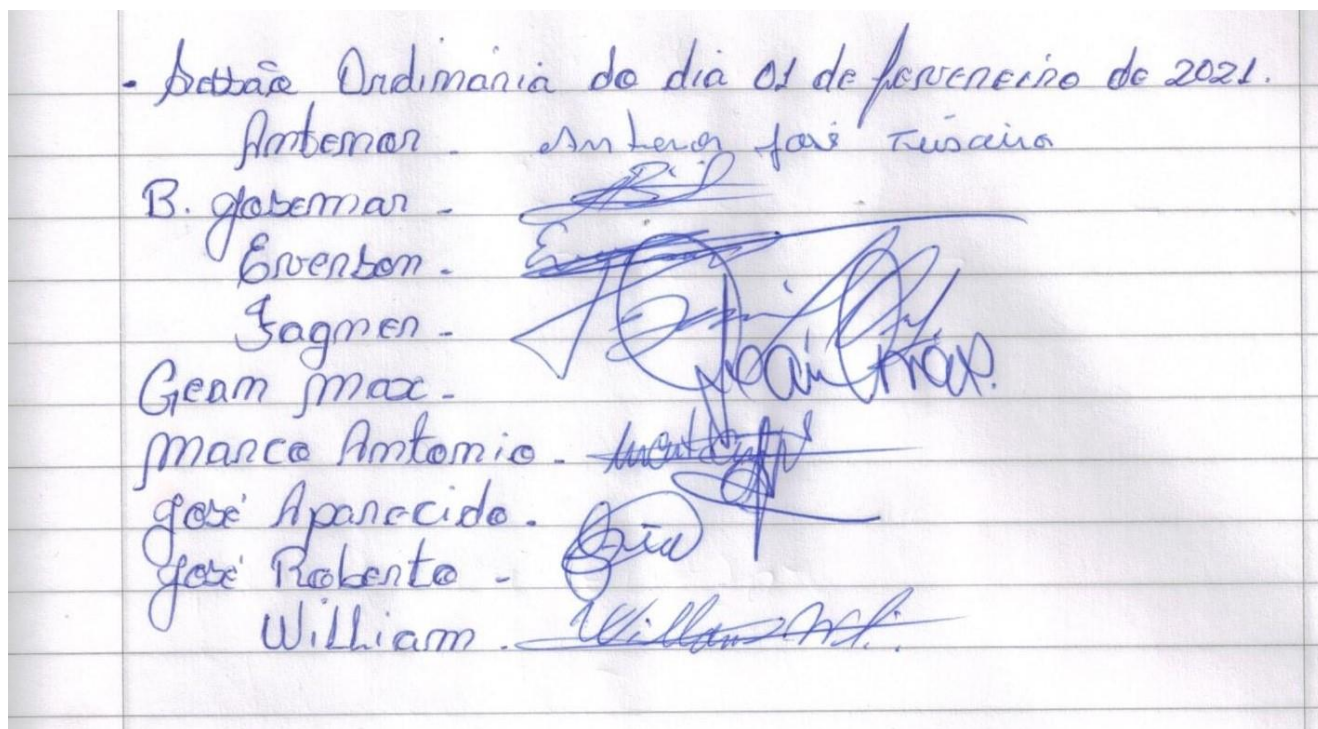 - Sessão Ordinária do dia 01 de fevereneiro de 2021.
Antenor - Antenor José Teixeira
B. Josemar -
Everson -
Fagner -
Gean Max - Jean Max.
Marco Antonio -
José Aparecido -
José Roberto -
William - William